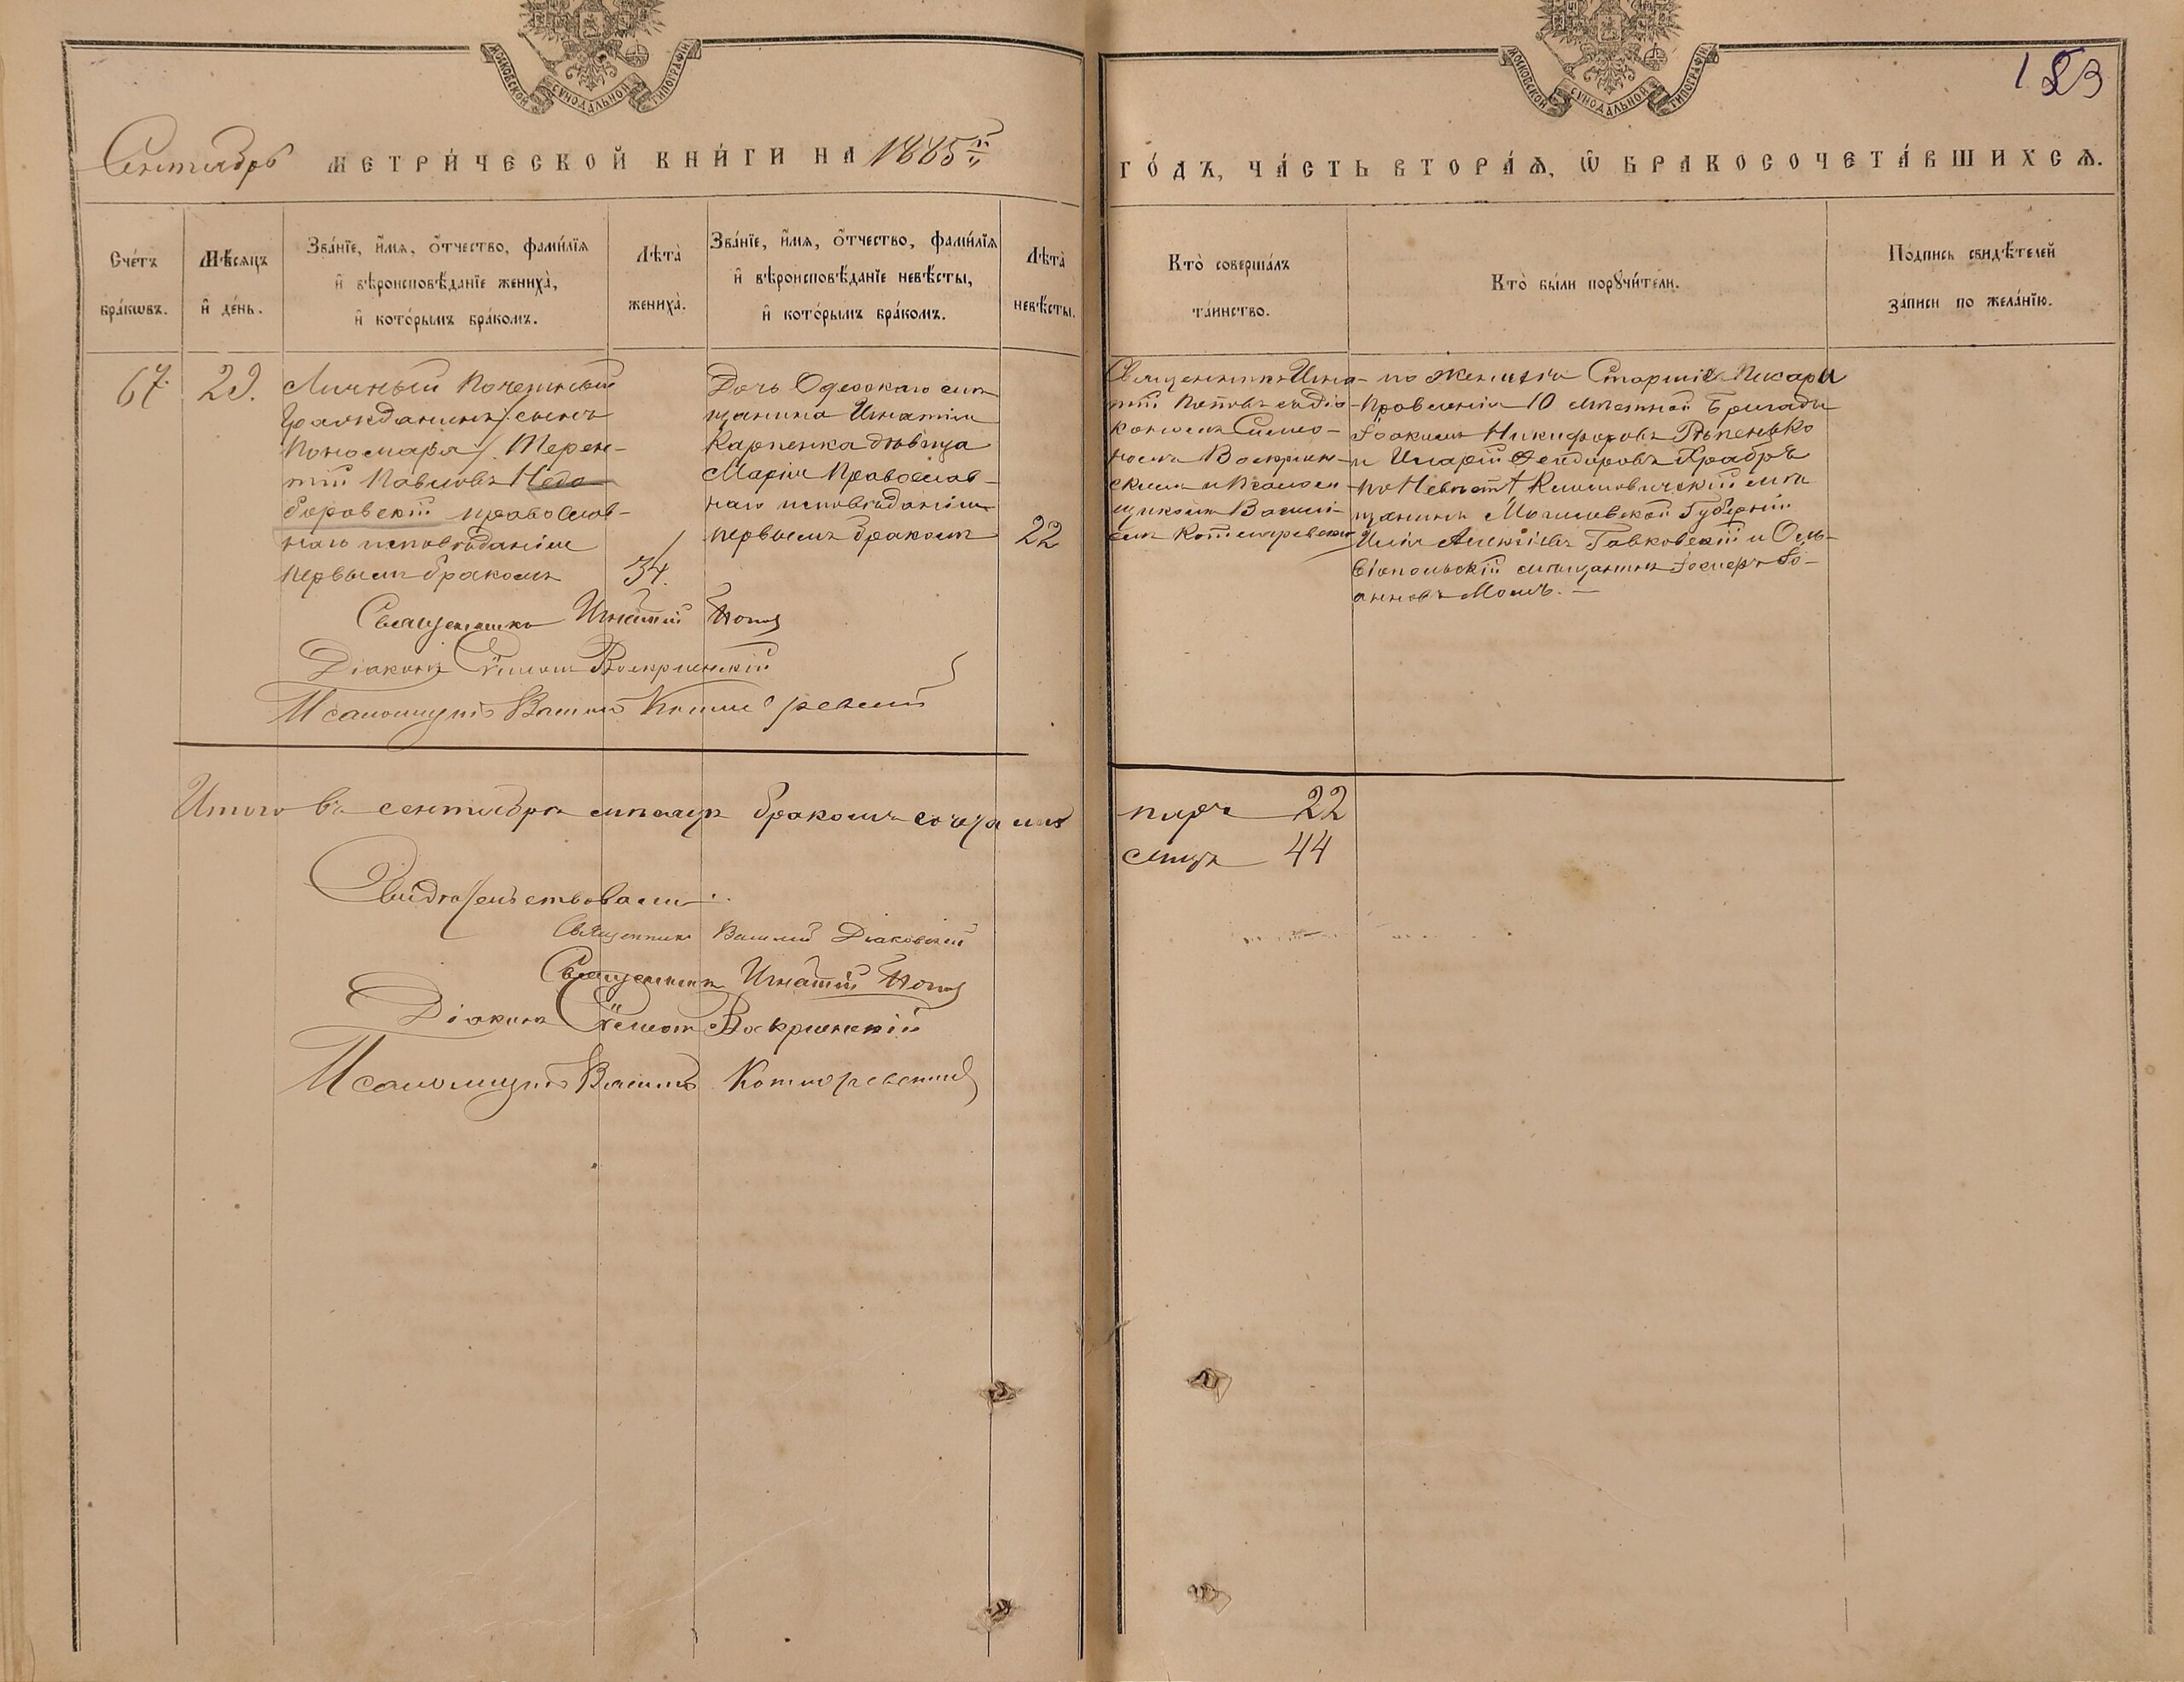 МОСКОВСКОЙ СУНОДАЛЬНОЙ ТИПОГРАФІИ
МОСКОВСКОЙ СУНОДАЛЬНОЙ ТИПОГРАФІИ
183
Сентябрь МЕТРИ́ЧЕСКОЙ КНИ́ГИ НА 1885й
ГО́ДЪ, ЧА́СТЬ ВТОРА́Ѧ, Ѽ БРАКОСОЧЕТА́ВШИХСѦ.
Сче́тъ бра́кѡвъ.
Мѣ́сѧцъ и҆ де́нь.
Зва́нїе, и҆́мѧ, ѻ҆́тчество, фами́лїѧ и҆ вѣроисповѣ́данїе жениха̀, и҆ кото́рымъ бра́комъ.
Лѣта̀ жениха̀.
Зва́нїе, и҆́мѧ, ѻ҆́тчество, фами́лїѧ и҆ вѣроисповѣ́данїе невѣ́сты, и҆ кото́рымъ бра́комъ.
Лѣта̀ невѣ́сты.
Кто̀ соверша́лъ та́инство.
Кто̀ бы́ли порꙋчи́тели.
По́дпись свидѣ́телей за́писи по жела́нїю.
67.
29.
Личный Почетный
Гражданинъ /: сынъ
Пономаря /. Терен-
тій Павловъ Недо
боровскій православ-
наго исповѣданія
первымъ бракомъ
34.
Дочь Одесскаго мѣ
щанина Игнатія
Карпенка дѣвица
Марія Православ-
наго исповѣданія
первымъ бракомъ
22
Священникъ Игна-
тій Поповъ съ діа-
кономъ Симео-
номъ Воскресен-
скимъ и Псалом
щикомъ Василі-
емъ Котляревскимъ
по женихѣ Старшіе Писаря
Правленія 10 мѣстной Бригады
Іоакимъ Никифоровъ Рѣпенько
и Иларій Феодоровъ Храбръ
по Невѣстѣ Климовичскій мѣ
щанинъ Могилевской Губерніи
Илія Алексіевъ Гавковскій и Оль-
віопольскій мѣщанинъ Іосифъ Іо-
анновъ
Священникъ Игнатій Поповъ
Діаконъ Симеонъ Воскресенскій
Псаломщикъ Василій Котляревскій
Итого въ сентябрѣ мѣсяцѣ бракомъ сочетались
паръ 22
лицъ 44
Свидѣтельствовали:
Священникъ Василій Діаковскій
Священникъ Игнатій Поповъ
Діаконъ Симеонъ Воскресенскій
Псаломщикъ Василій Котляревскій